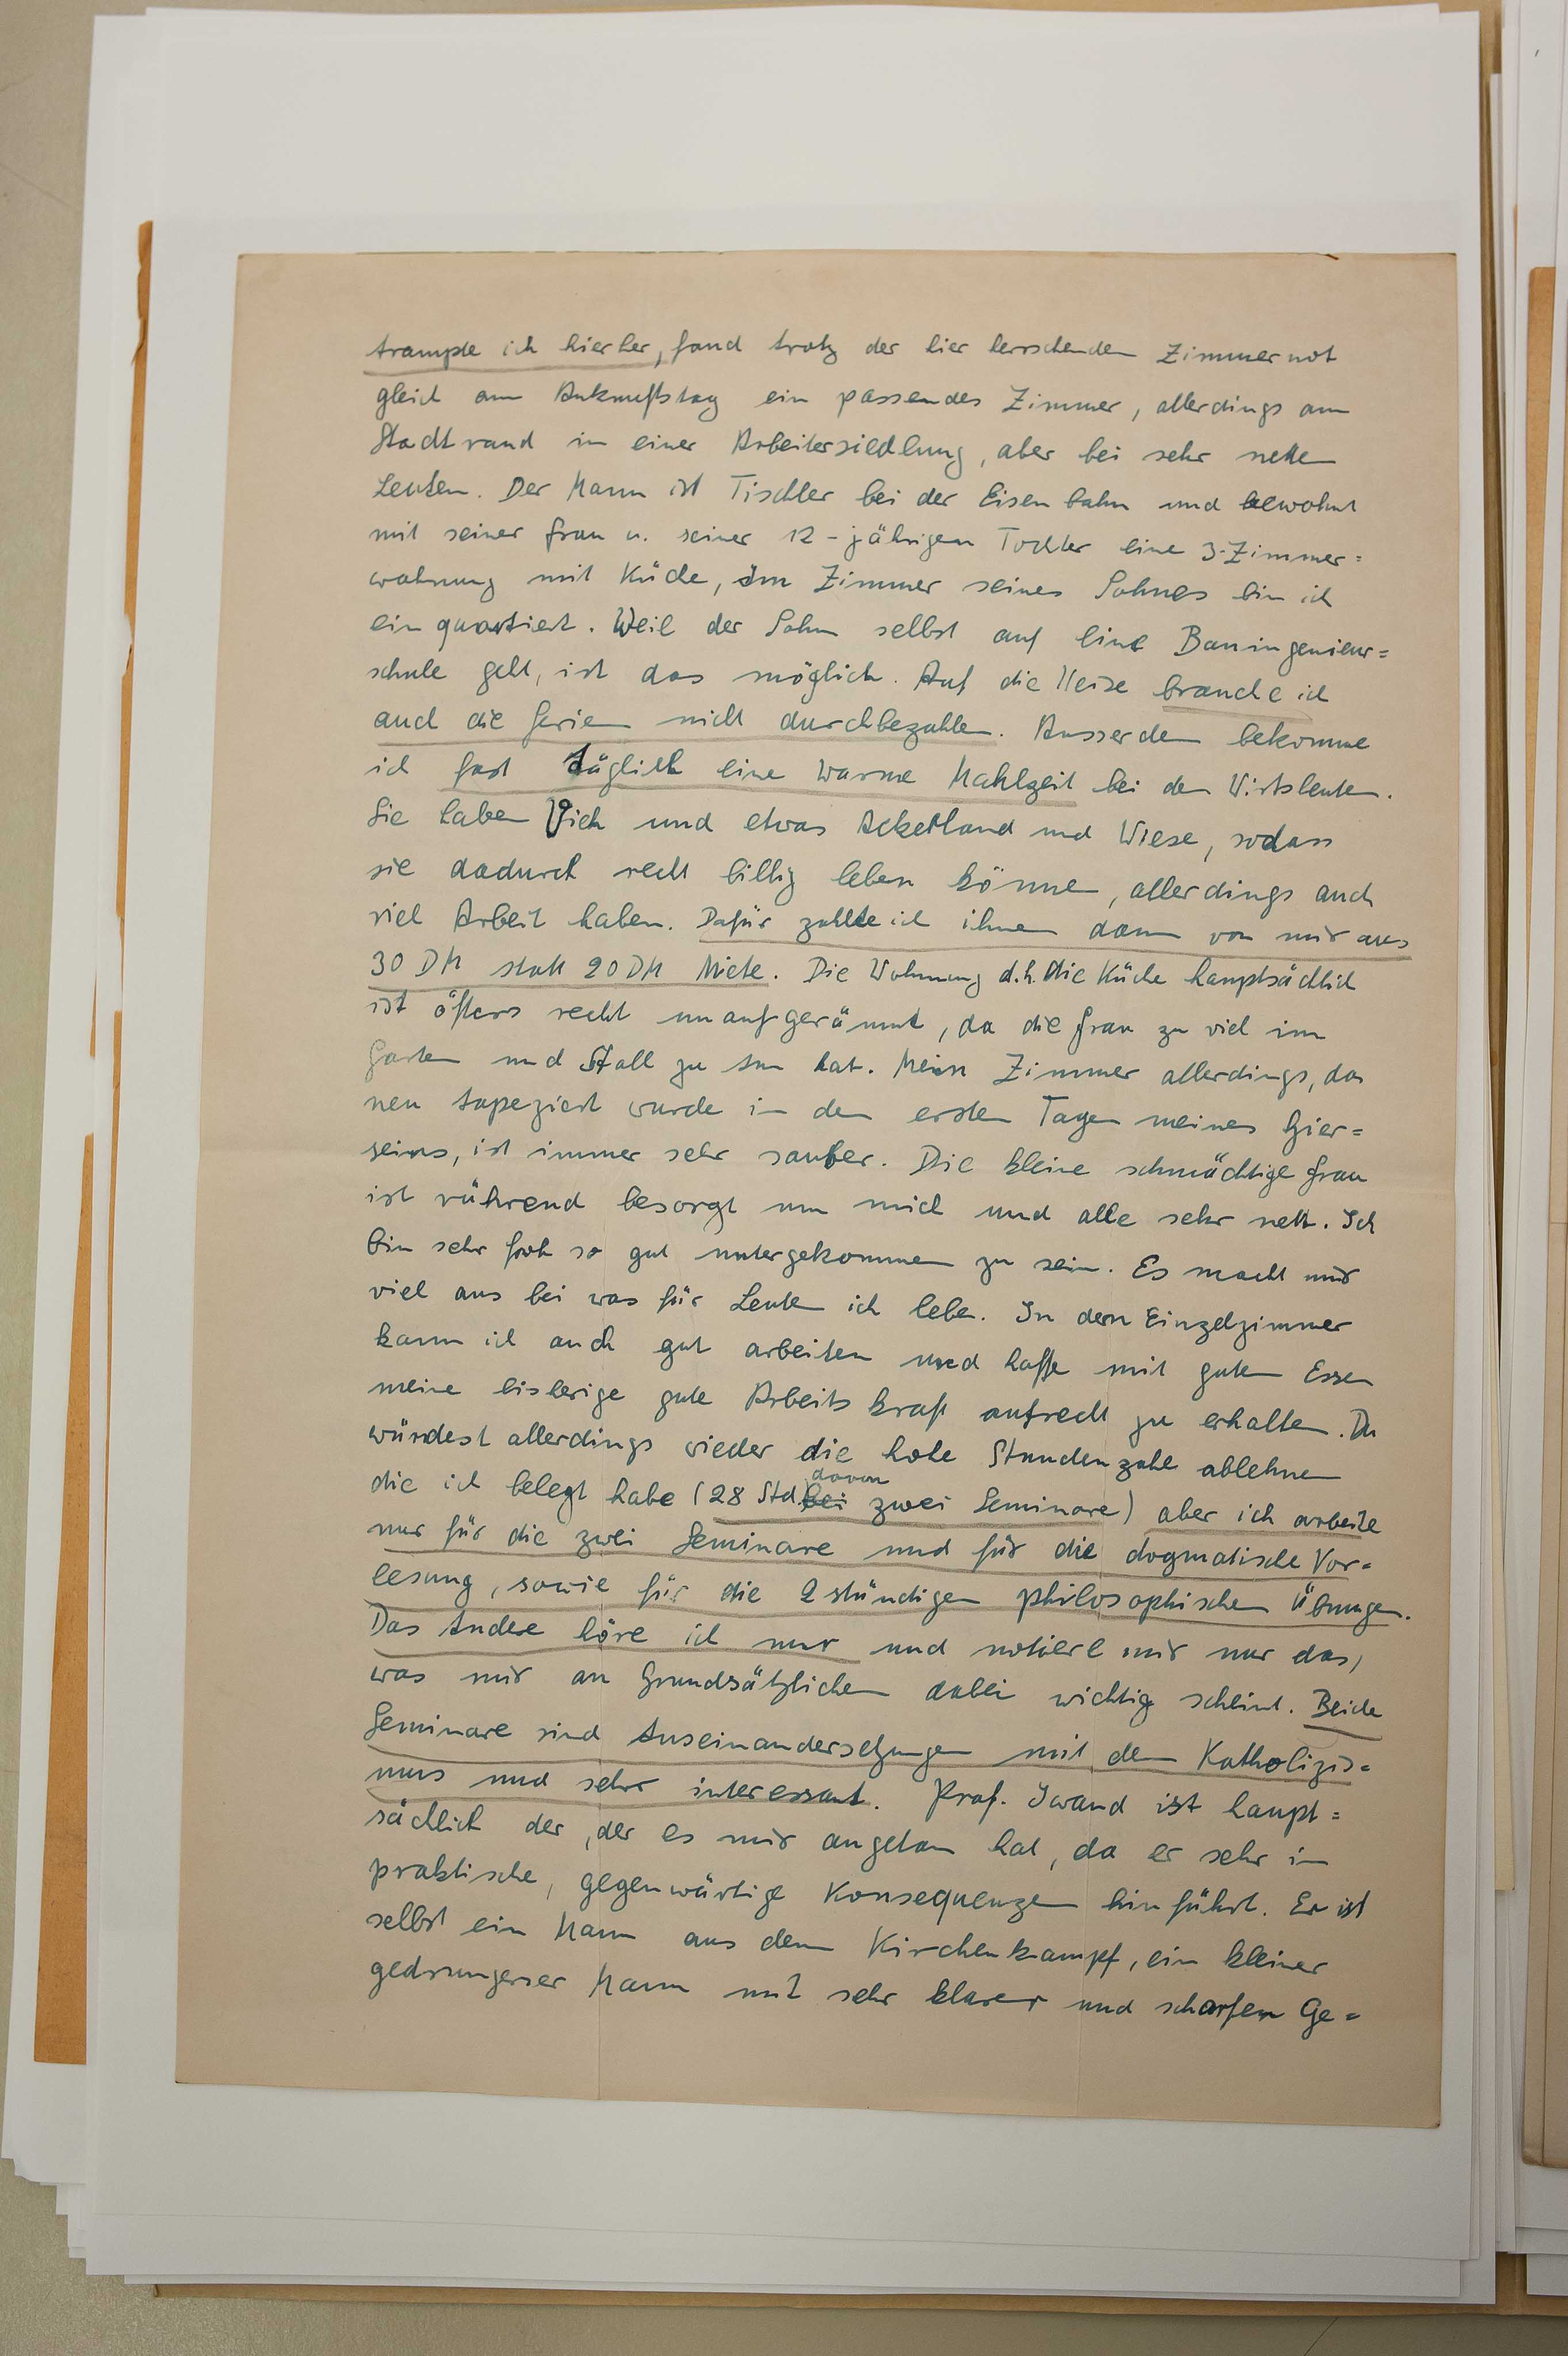 trampte ich hierher, fand trotz der hier herrschenden Zimmernot
gleich am Ankunftstag ein passendes Zimmer, allerdings am
Stadtrand in einer Arbeitersiedlung, aber bei sehr netten
Leuten. Der Mann ist Tischler bei der Eisenbahn und bewohnt
mit seiner Frau u. seiner 12-jährigen Tochter eine 3-Zimmer=
wohnung mit Küche, im Zimmer seines Sohnes bin ich
einquartiert. Weil der Sohn selbst auf eine Bauingenieur=
schule geht, ist das möglich. Auf die Weise brauche ich
auch die Ferien nicht durchbezahlen. Ausserdem bekomme
ich fast täglich eine warme Mahlzeit bei den Wirtsleuten.
Sie haben Vieh und etwas Ackerland und Wiese, sodass
sie dadurch recht billig leben können, allerdings auch
viel Arbeit haben. Dafür zahlte ich ihnen dann von mir aus
30 DM statt 20 DM Miete. Die Wohnung d.h. die Küche hauptsächlich
ist öfters recht unaufgeräumt, da die Frau zu viel im
Garten und Stall zu tun hat. Mein Zimmer allerdings, das
neu tapeziert wurde in den ersten Tagen meines Hier=
seins, ist immer sehr sauber. Die kleine schmächtige Frau
ist rührend besorgt um mich und alle sehr nett. Ich
bin sehr froh so gut untergekommen zu sein. Es macht mir
viel aus bei was für Leuten ich lebe. In dem Einzelzimmer
kann ich auch gut arbeiten und hoffe mit gutem Essen
meine bisherige gute Arbeitskraft aufrecht zu erhalten. Du
würdest allerdings wieder die hohe Stundenzahl ablehnen
die ich belegt habe (28 Std. bei davon zwei Seminare) aber ich arbeite
nur für die zwei Seminare und für die dogmatische Vor=
lesung, sowie für die 2stündigen philosophischen Übungen.
Das Andere höre ich nur und notiere mir nur das,
was mir an Grundsätzlichem dabei wichtig scheint. Beide
Seminare sind Auseinandersetzungen mit dem Katholizis=
mus und sehr interessant. Prof. Iwand ist haupt=
sächlich der, der es mir angetan hat, da er sehr in
praktische, gegenwärtige Konsequenzen hinführt. Er ist
selbst ein Mann aus dem Kirchenkampf, ein kleiner
gedrungener Mann mit sehr klarer und scharfen Ge=